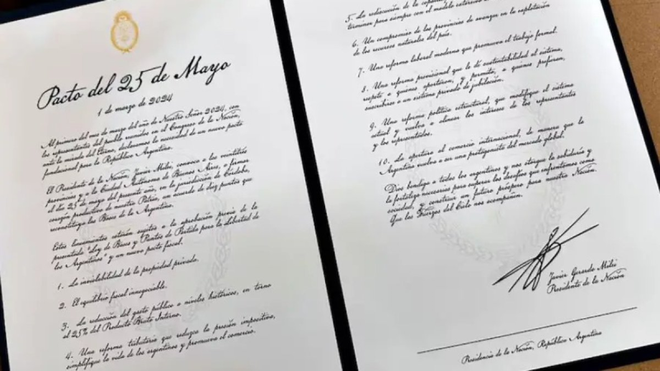 Pacto del 25 de Mayo
1 de marzo de 2024
Al primer día del mes de marzo del año de Nuestro Señor 2024, con
los representantes del pueblo reunidos en el Congreso de la Nación,
ante la mirada del Eterno, declaramos la necesidad de un nuevo pacto
fundacional para la República Argentina.
El Presidente de la Nación, Javier Milei, convoca a las
provincias y a la Ciudad Autónoma de Buenos Aires, a firmar
el día 25 de mayo del presente año, en la jurisdicción de Córdoba,
corazón productivo de nuestra Patria, un acuerdo de diez puntos que
las Bases de la Argentina.
Estos lineamientos estarán sujetos a la aprobación previa de la
presentada "Ley de Bases y Puntos de Partida para la Libertad de
los Argentinos" y un nuevo pacto fiscal.
1. La inviolabilidad de la propiedad privada.
2. El equilibrio fiscal innegociable.
3. La reducción del gasto público a niveles históricos, en torno
al 25% del Producto Bruto Interno.
4. Una reforma tributaria que reduzca la presión impositiva,
simplifique la vida de los argentinos y promueva el comercio.
5. La rediscusión de la
para siempre con el modelo
6. Un compromiso de las provincias de avanzar en la explotación
de los recursos naturales del país.
7. Una reforma laboral moderna que promueva el trabajo formal.
8. Una reforma previsional que le dé sustentabilidad al sistema,
respete a quienes aportaron, y permita, a quienes prefieran,
suscribirse a un sistema privado de jubilación.
9. Una reforma política estructural, que modifique el sistema
actual y vuelva a alinear los intereses de los representantes
y los representados.
10. La apertura al comercio internacional, de manera que la
Argentina vuelva a ser una protagonista del mercado global.
Dios bendiga a todos los argentinos y nos otorgue la sabiduría y
la fortaleza necesarias para superar los desafíos que enfrentamos como
sociedad, y construir un futuro próspero para nuestra Nación.
Que las Fuerzas del Cielo nos acompañen.
Javier Gerardo Milei
Presidente de la Nación
Presidencia de la Nación, República Argentina